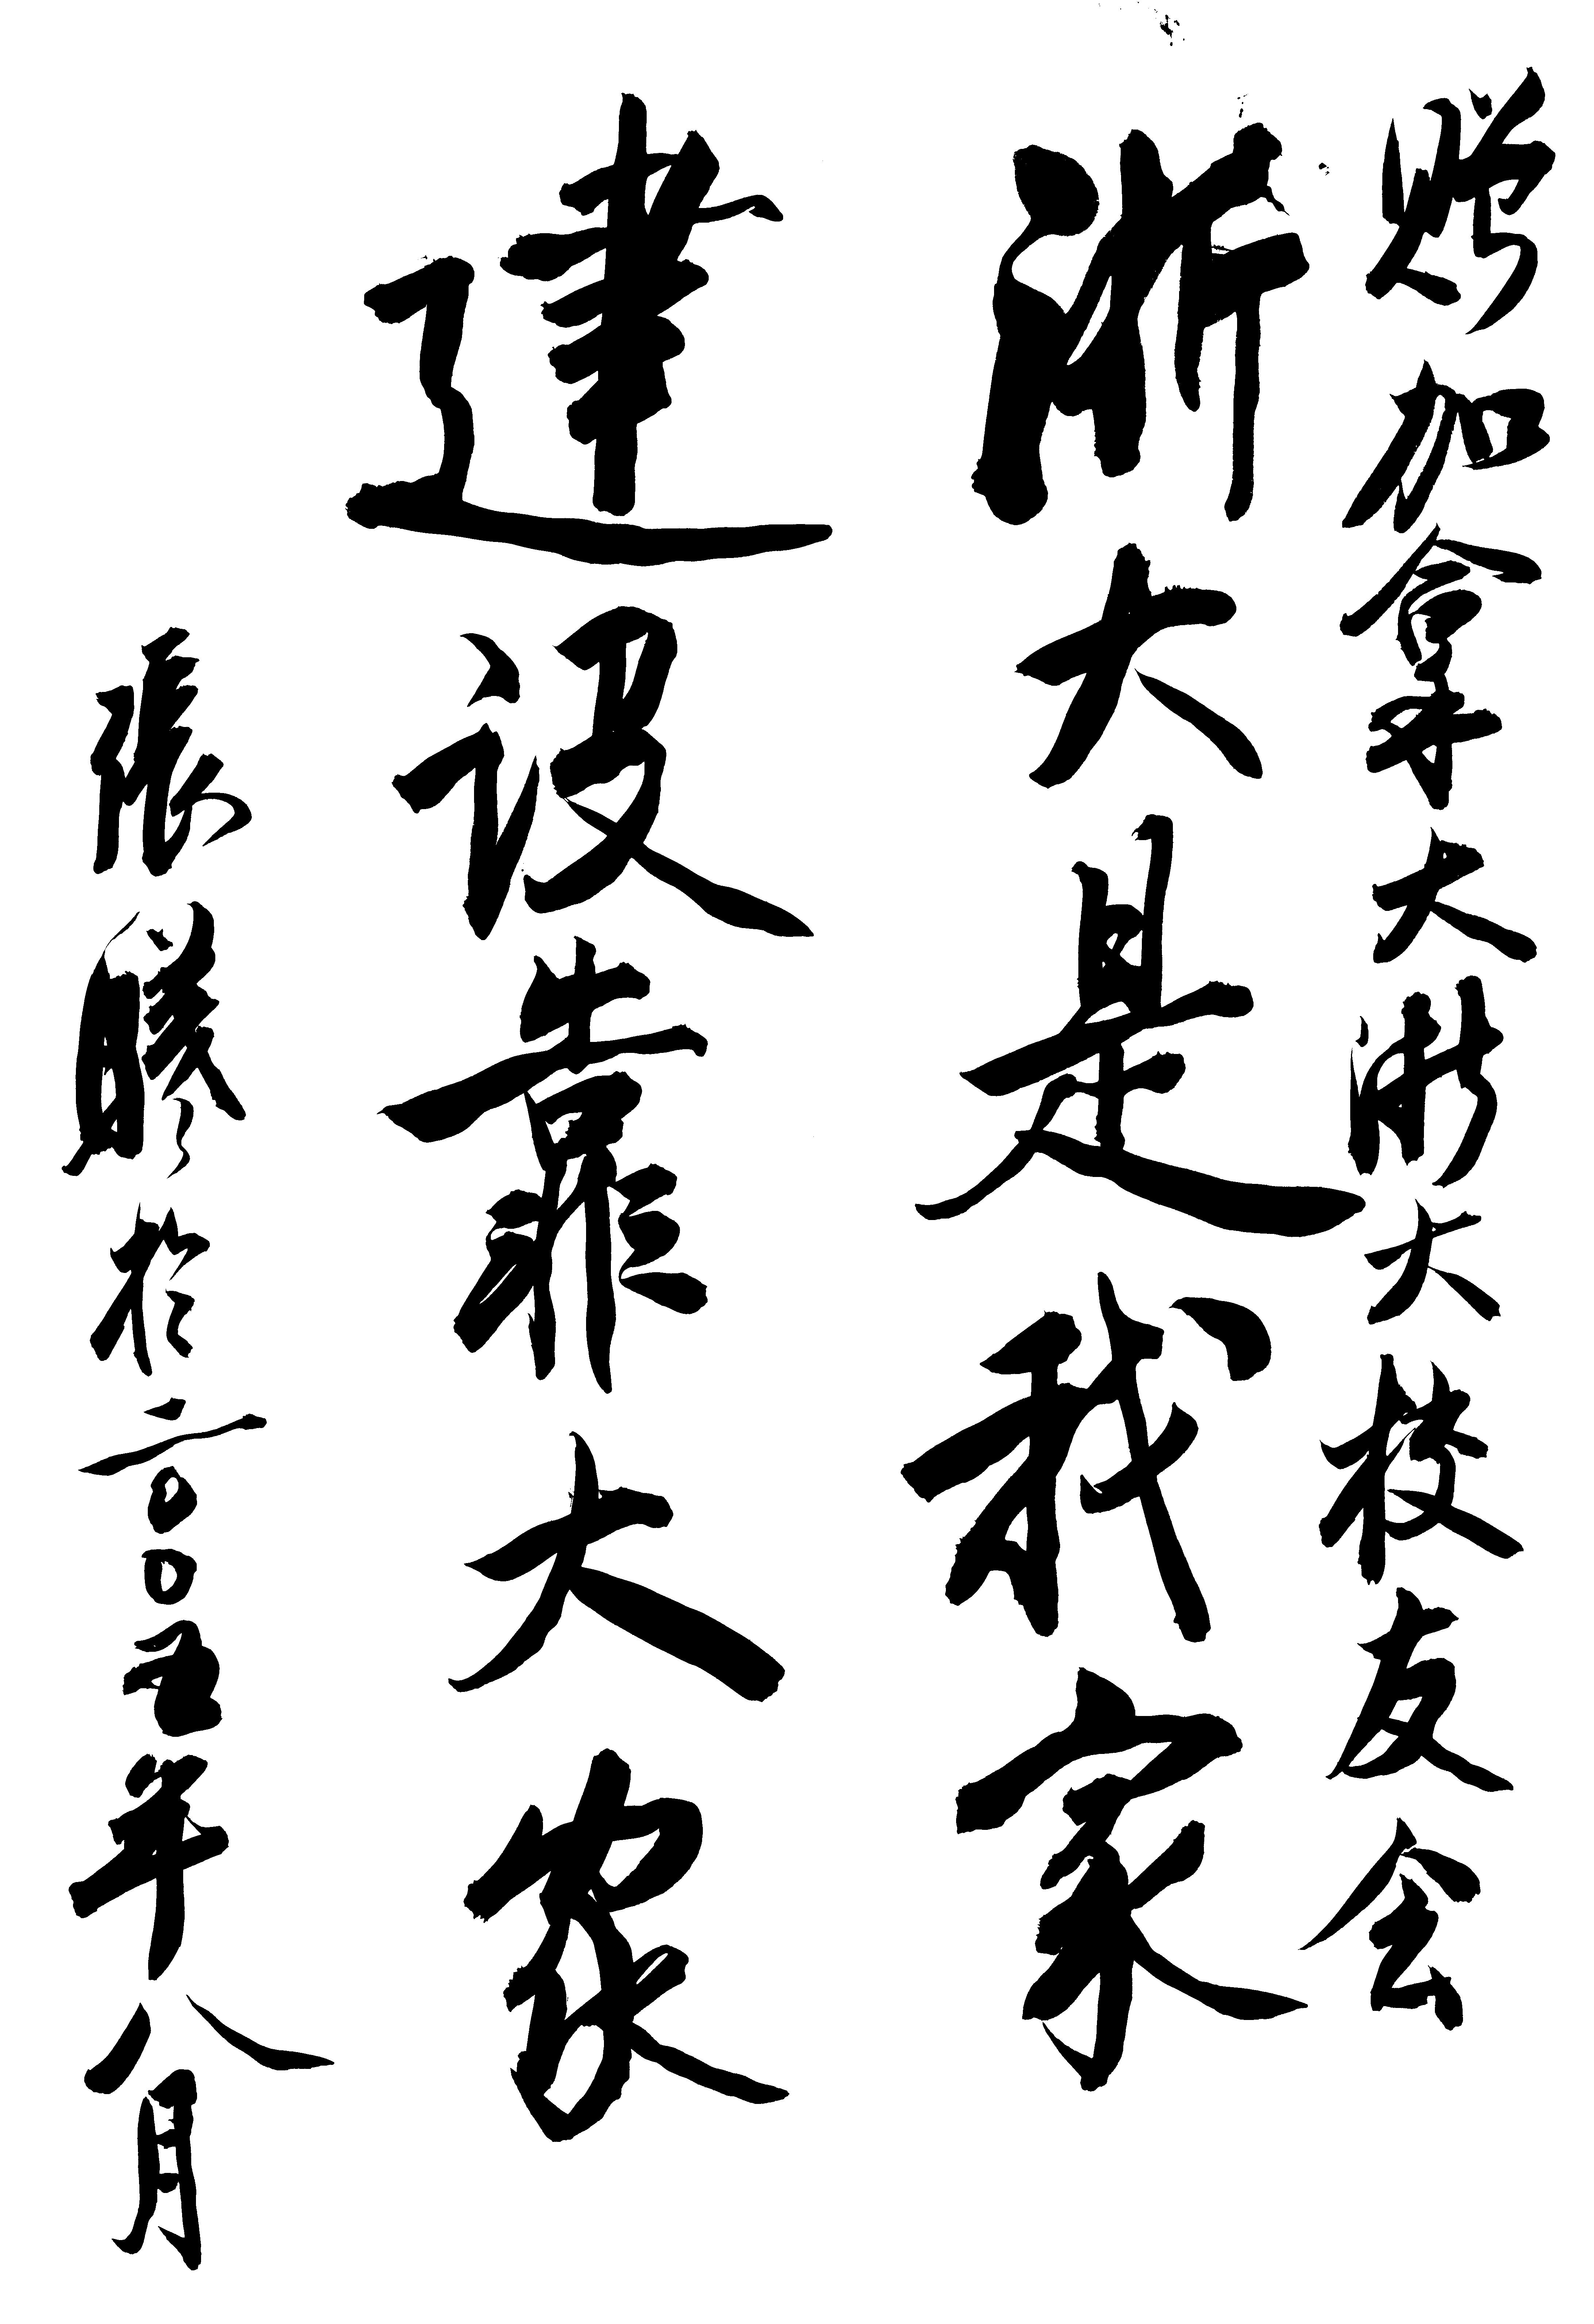 赠加拿大浙大校友会
浙大是我家
建设靠大家
張勝於二〇〇五年八月